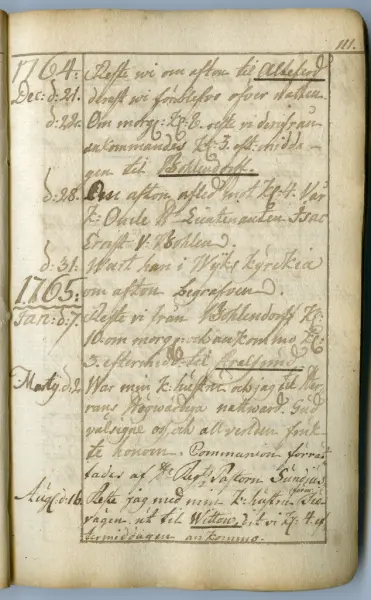 111.
1764. Reste wi om afton til Altefæhr
Dec: d: 21. derest wi förblefvo öfver natten.
d: 22. Om morg: Kl: 8. reste wi derifrån
ankommandes Kl: 3. eft: midda-
gen til Bohlendorff.
d: 28. Om afton afled mot Kl: 4. Vår
K: Oncle Hr Lieutenanten Isac
Ernst V: Bohlen.
d: 31. Wart han i Wyks kyrckia
1765. om afton begrafven.
Jan: d: 7. Reste vi från Bohlendorff Kl:
om morg: och ankommo Kl:
3. eftermidd: til Stralsund.
Martij d: 2. War min K: hustru och jag til Her-
rans Högwärdiga nattward. Gud
välsigne oss och all verlden
honom. Communion förrät-
tades af Hr Past: Pastorn
Aug: d: 16. Reste jag med min K: hustru
vägen ut til Wittow, dit vi Kl: 4. ef
termiddagen ankommo.